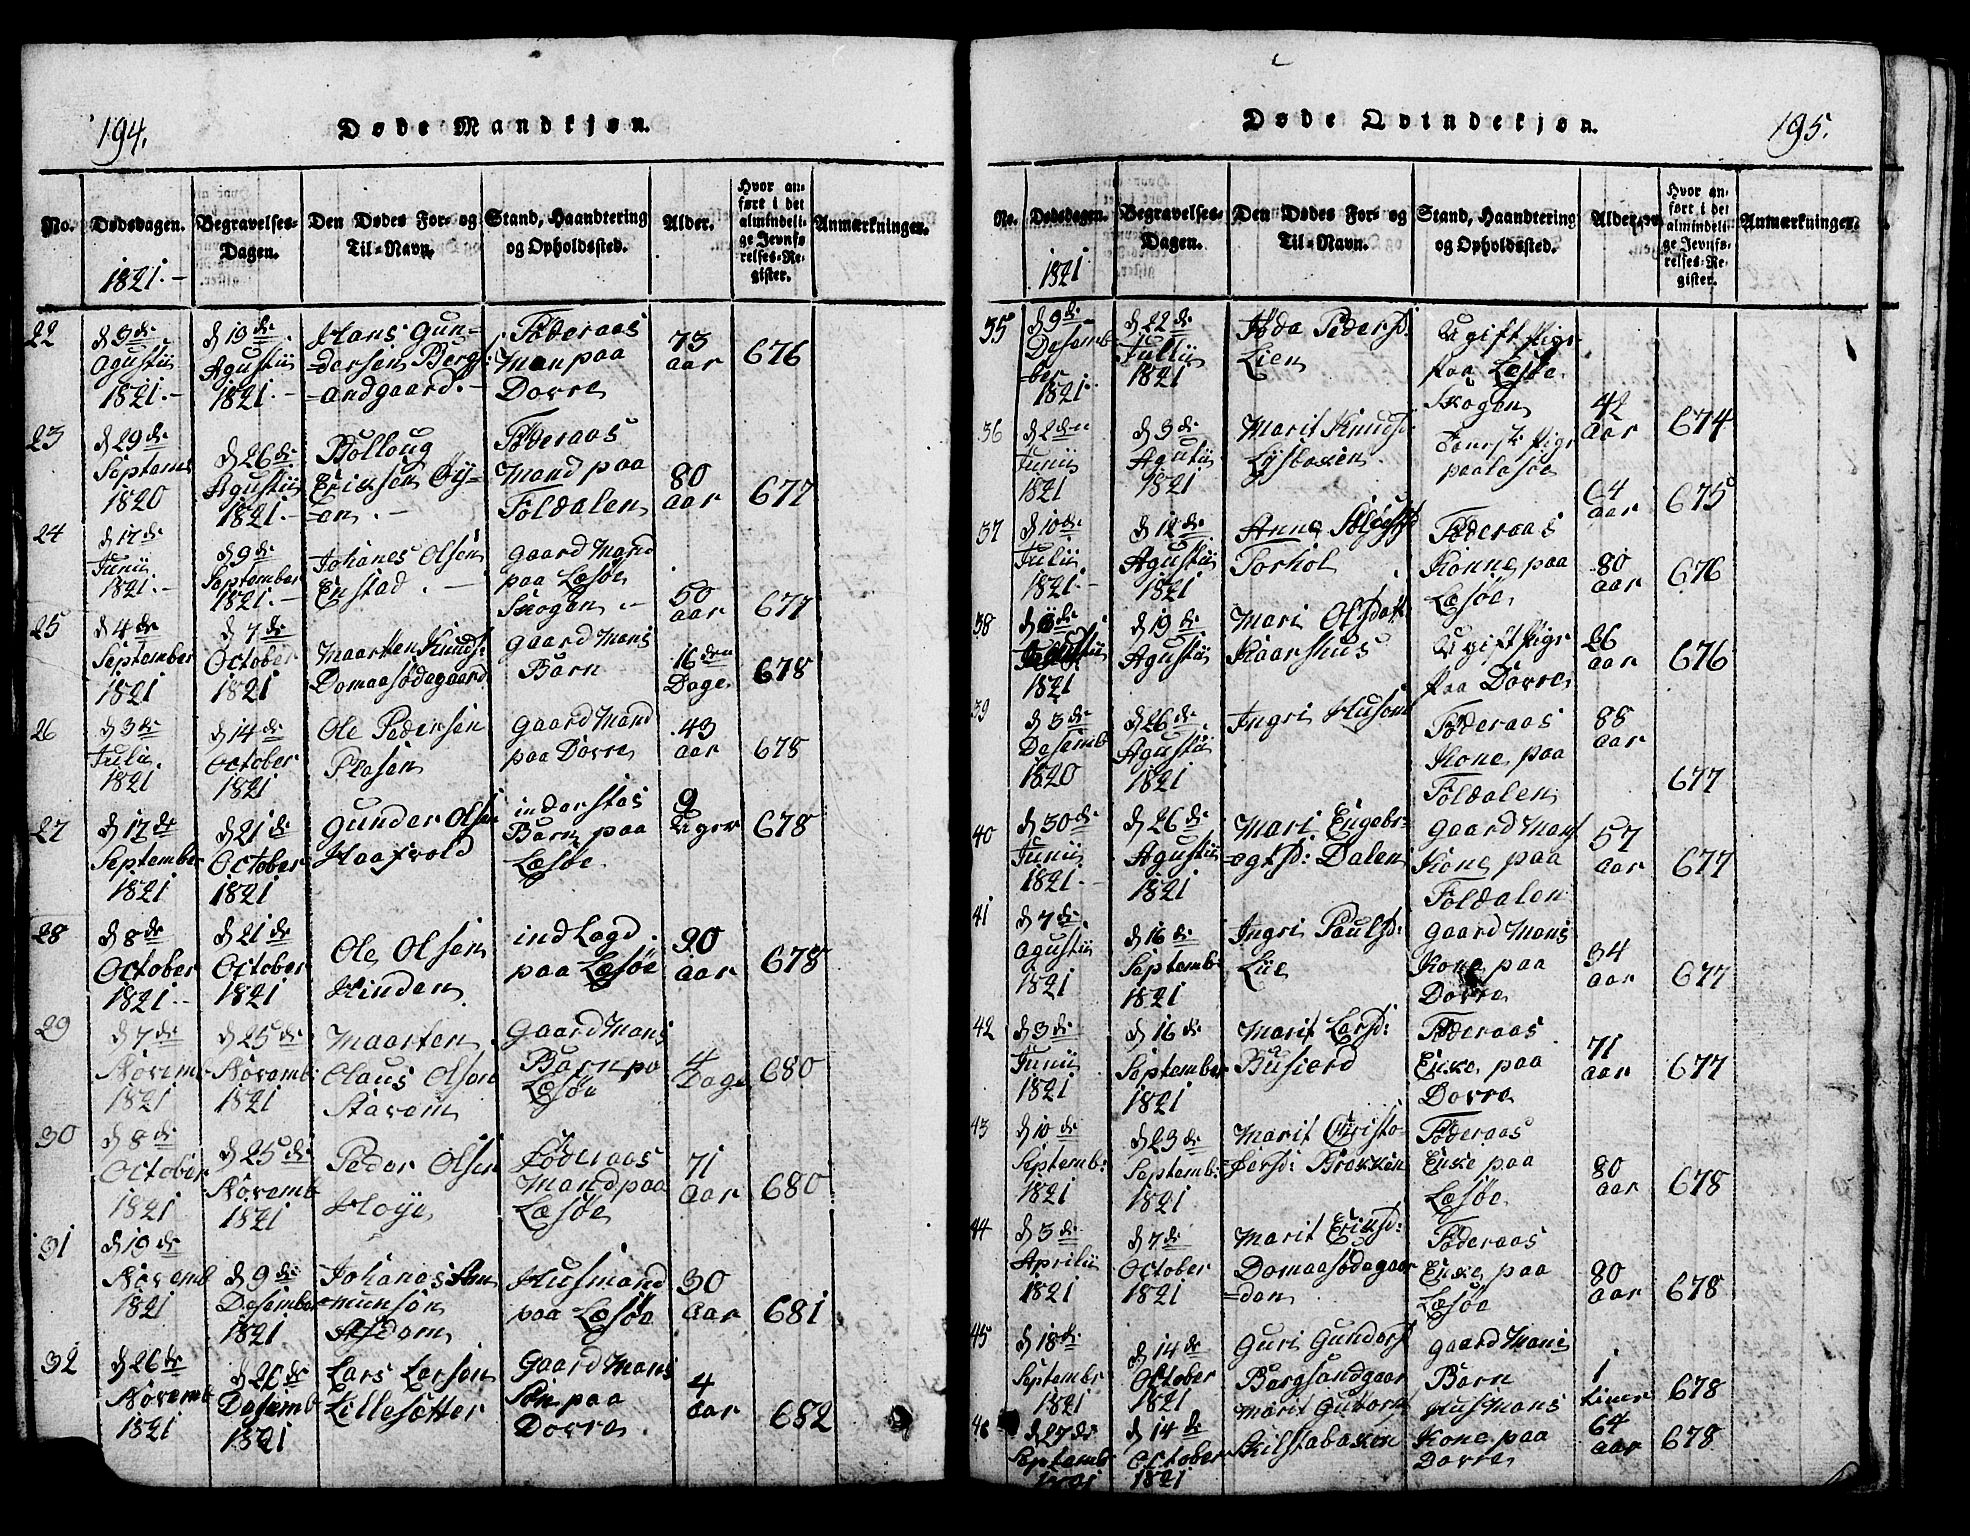 194.
Døde Mandkjøn.
No. Dødsdagen. Begravelses-Dagen. Den Dødes For- og Til-Navn. Stand, Haandtering og Opholdssted. Alder. Hvor anført i det almindelige Jevnførelses-Register. Anmærkninger.
1821.-
22
d 9de Agustii 1821.-
d 19de Agustii 1821.-
Hans Gun=
=dersen Bergs:
=andgaard.-
Föderaas
Man paa
Dovre
73 aar
676
23
d 29de Septemb 1820
d 26de Agustii 1821.-
Bölloug
Eriksen Ry=
=en.-
Föderaas
Mand paa
Foldalen
80 aar
677
24
d 17de Junii 1821.-
d 9de September 1821.-
Johanes Olsen
Enstad.-
gaard Mand
paa Læsöe
Skogen.-
50 aar
677
25
d 4de September 1821
d 7de October 1821
Maarten Knuds:
Domaasödegaard
gaard Mans
Barn
16 den Dage
678
26
d 3de Julii 1821
d 14de October 1821
Ole Pedersen
Plasen
gaard Mand
paa Dovre
43 aar
678
27
d 17de September 1821
d 21de October 1821
Gunder Olsen
Haafvold
inderstes
Barn paa
Læsöe
9 Uger
678
28
d 8de October 1821.-
d 21de October 1821
Ole Olsen
Hinden
ind Lagd.
paa Læsöe
90 aar
678
29
d 7de Novemb 1821
d 25de Novemb 1821
Maarten
Olaus Olsen
Stavem
Gaard Mans
Barn pa
Læsöe
4 Dage
680
30
d 8de October 1821
d 25de Novemb 1821
Peder Olsen
Hoye
Föderaas
Mand paa
Læsöe
71 aar
680
31
d 19de Novemb 1821
d 9de Desember 1821
Johanes Am
=munsen
Husmand
paa Læsöe
30 aar
681
32
d 26de Novemb 1821
d 26de Desemb 1821
Lars Larsen
Lillesætter
Gaard Mans
Sön paa
Dovre
4 aar
682
195.
Døde Qvindekjøn.
No. Dødsdagen. Begravelses-Dagen. Den Dødes For- og Til-Navn. Stand, Haandtering og Opholdssted. Alder. Hvor anført i det almindelige Jevnførelses-Register. Anmærkninger.
1821
35
d 9de Desemb=
=ber 1821.
d 22de Julii 1821
Pedersd:
Lien
Ugift Pige
paa Læsöe
Skogen
42 aar
674
36
d 2den Junii 1821
d 5de Agustii 1821
Marit Knudsd:
Pige
paa Læsöe
64 aar
675
37
d 10de Julii 1821.-
d 12de Agustii 1821
Anne
Torhol
Föderaas
Konne paa
Læsöe
80 aar
676
38
1821
d 19de Agustii
Mari Olsdatt
Kaarshus
Ugift Pige
paa Dovre
26 aar
676
39
d 3de Desemb 1820
d 26de Agustii 1821
Ingri Husom
Föderaas
Kone paa
Foldalen
88 aar
677
40
d 30de Junii 1821.-
d 26de Agustii 1821
Mari Engebr=
=egtsd: Dalen
gaard Mans
Kone paa
Foldalen
57 aar
677
41
d 7de Agustii 1821
d 16de Septemb: 1821
Ingri Paulsd:
Lie
gaard Mans
Kone paa
Dovre
34 aar
677
42
d 3de Junii 1821
d 16de September 1821
Marit Larsd:
Busierd
Föderaas
Enke paa
Dovre
71 aar
677
43
d 10de Septemb: 1821
d 23de Septemb: 1821
Marit Christo=
=fersd: Brekken
Föderaas
Enke paa
Læsöe
80 aar
678
44
d 3de Aprilii 1821
d 7de October 1821
Marit Eriksd:
Domaasödegaar
=den
Föderaas
Enke paa
Læsöe
80 aar
678
45
d 18de Septembr 1821
d 14de October 1821
Guri Gundersd
Bergsandgaar
gaard Mans
Barn
1 Time
678
46
d 27de Septemb 1821
d 14de October 1821
Marit Gutorm
Kilstabakken
Husmans
Kone paa
Dovre
64 aar
678